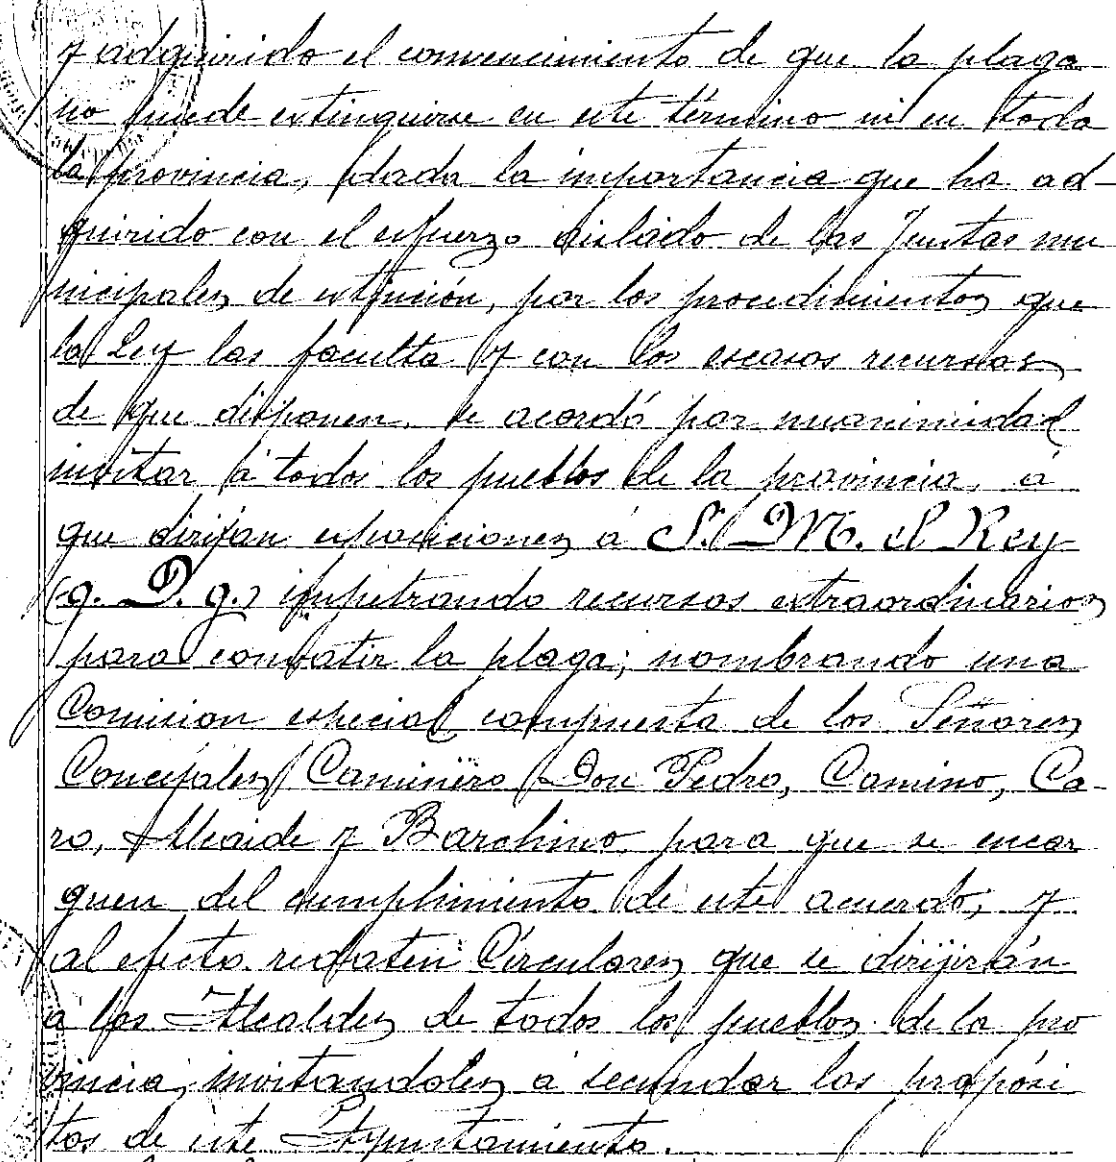 y adquirido el convencimiento de que la plaga
no puede extinguirse en este término ni en toda
la provincia, dada la importancia que ha ad-
quirido con el esfuerzo aislado de las Juntas mu
nicipales de extinción, por los procedimientos que
la Ley las faculta y con los escasos recursos
de que disponen, se acordó por unanimidad
invitar á todos los pueblos de la provincia, á
que dirijan exposiciones á S. M. el Rey
(q. D. g.) impetrando recursos extraordinarios
para combatir la plaga; nombrando una
Comision especial compuesta de los Señores
Concejales Caminero Don Pedro, Camino, Ca-
ro, Alcaide y Barchino para que se encar
guen del cumplimiento de este acuerdo; y
al efecto redaten Circulares que se dirijirán
á los Alcaldes de todos los pueblos de la pro
vincia, invitandoles á secundar los propósi
tos de este Ayuntamiento.